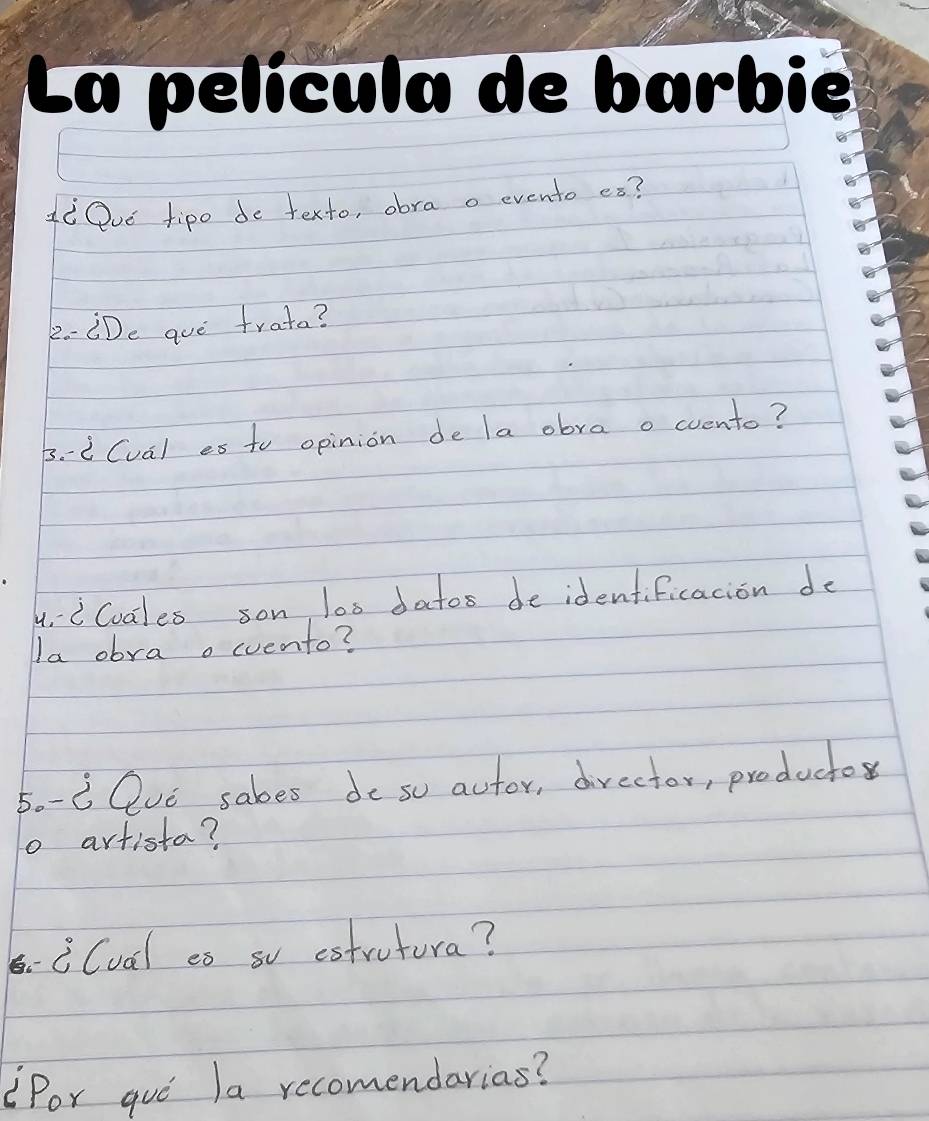 La película de barbie
1¿Qué tipo de texto, obra o evento es?
2.-¿De qué trata?
3.-¿Cuál es tu opinión de la obra o cuento?
4.-¿Cuáles son los datos de identificación de
la obra o cuento?
5.-¿Qué sabes de su autor, director, productor
o artista?
6.-¿Cuál es su estrutura?
¿Por qué la recomendarias?